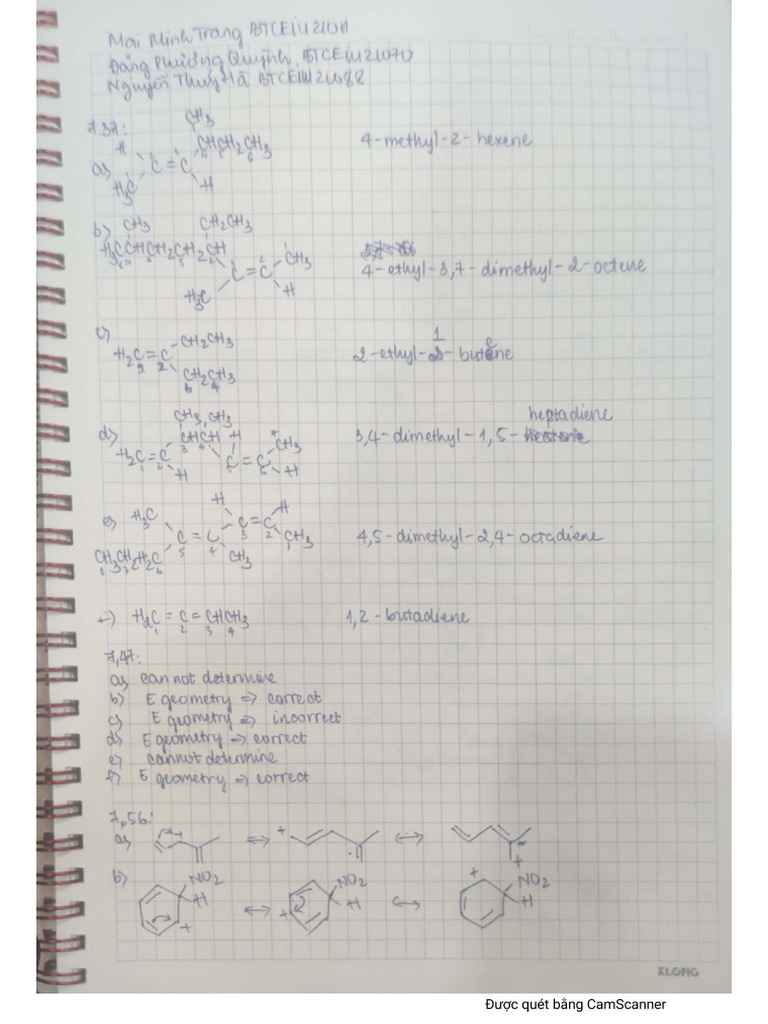 Mai Minh Trang BTCEIU21011
Đặng Phương Quỳnh BTCEIU21070
Nguyễn Thuý Hà BTCEIU21088
7.37:
a) H H₃C C = C CH₃ CHCH₂CH₃ H 4-methyl-2-hexene
b) CH₃ CH₂CH₃
H₃CCHCH₂CH₂CH C = C CH₃ H₃C H
4-ethyl-3,7-dimethyl-2-octene
c) H₂C = C CH₂CH₃ CH₂CH₃ 2-ethyl-1-butene
d) CH₃ CH₃ CHCH H₂C = C H H C = C CH₃ H 3,4-dimethyl-1,5-heptadiene
e) H₃C CH₃CH₂H₂C C = C CH₃ H C = C H CH₃ 4,5-dimethyl-2,4-octadiene
f) H₂C = C = CHCH₃ 1,2-butadiene
7,47:
a) cannot determine
b) E geometry => correct
c) E geometry => incorrect
d) E geometry => correct
e) cannot determine
f) E geometry => correct
7,56:
a) ↔ + ↔ +
b) NO₂ H + ↔ + NO₂ H ↔ + NO₂ H
KLONG
Được quét bằng CamScanner